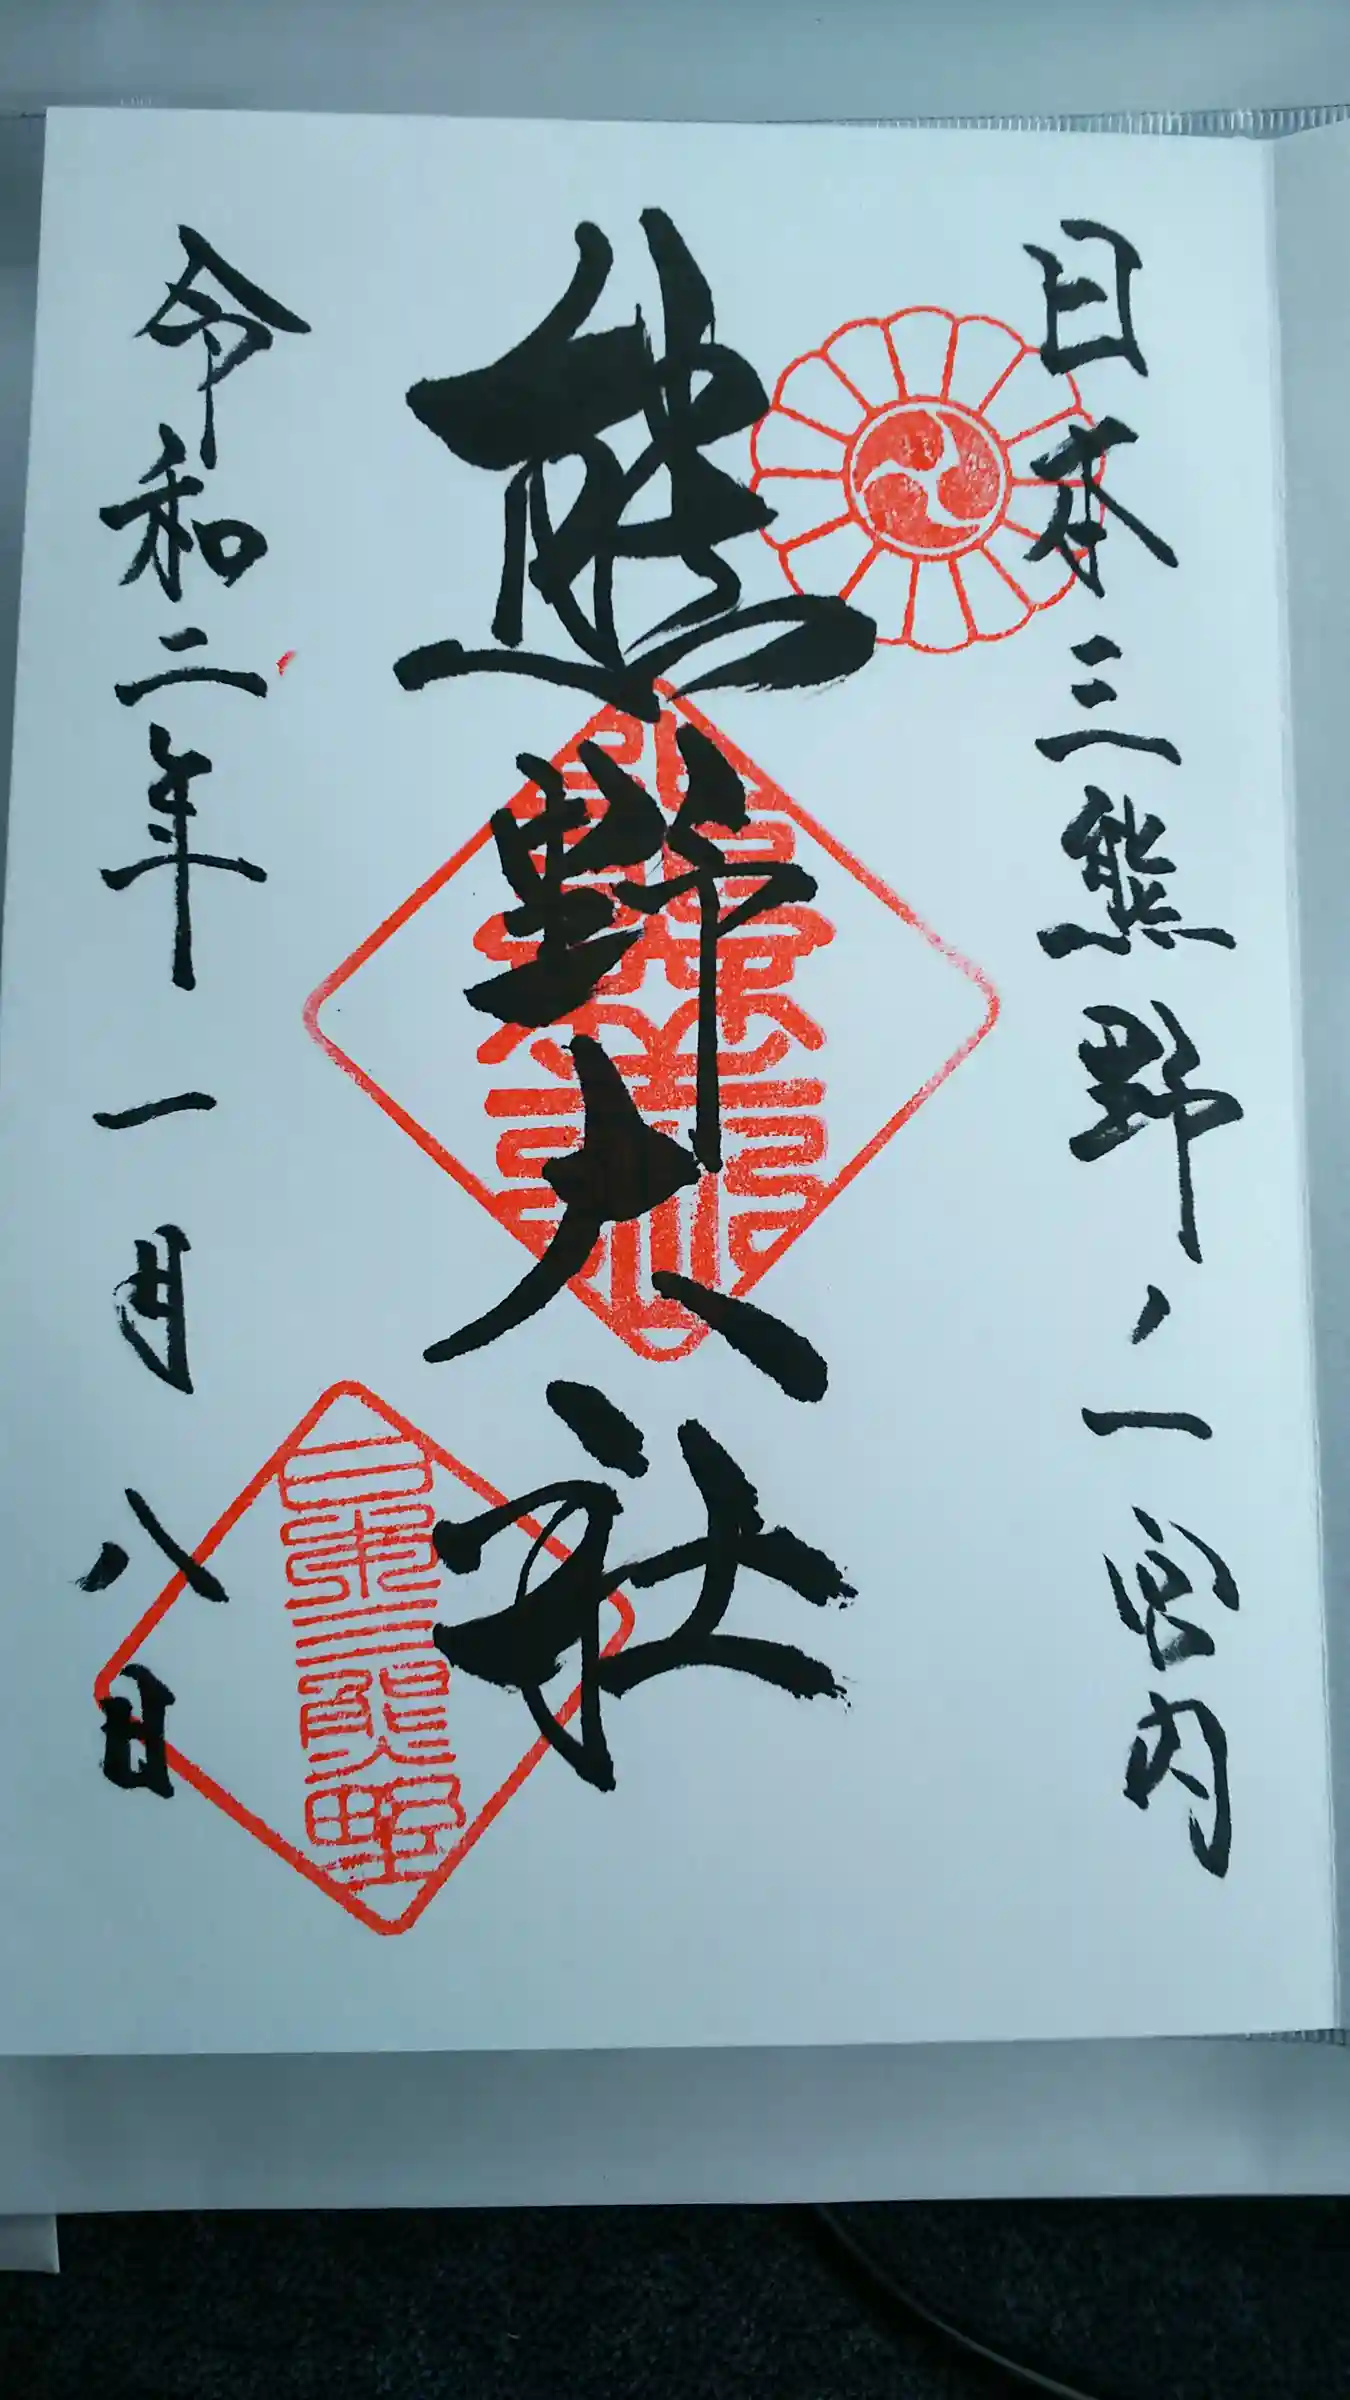 日本三熊野ノ一宮内
熊野大社
令和二年一月八日
日本三熊野